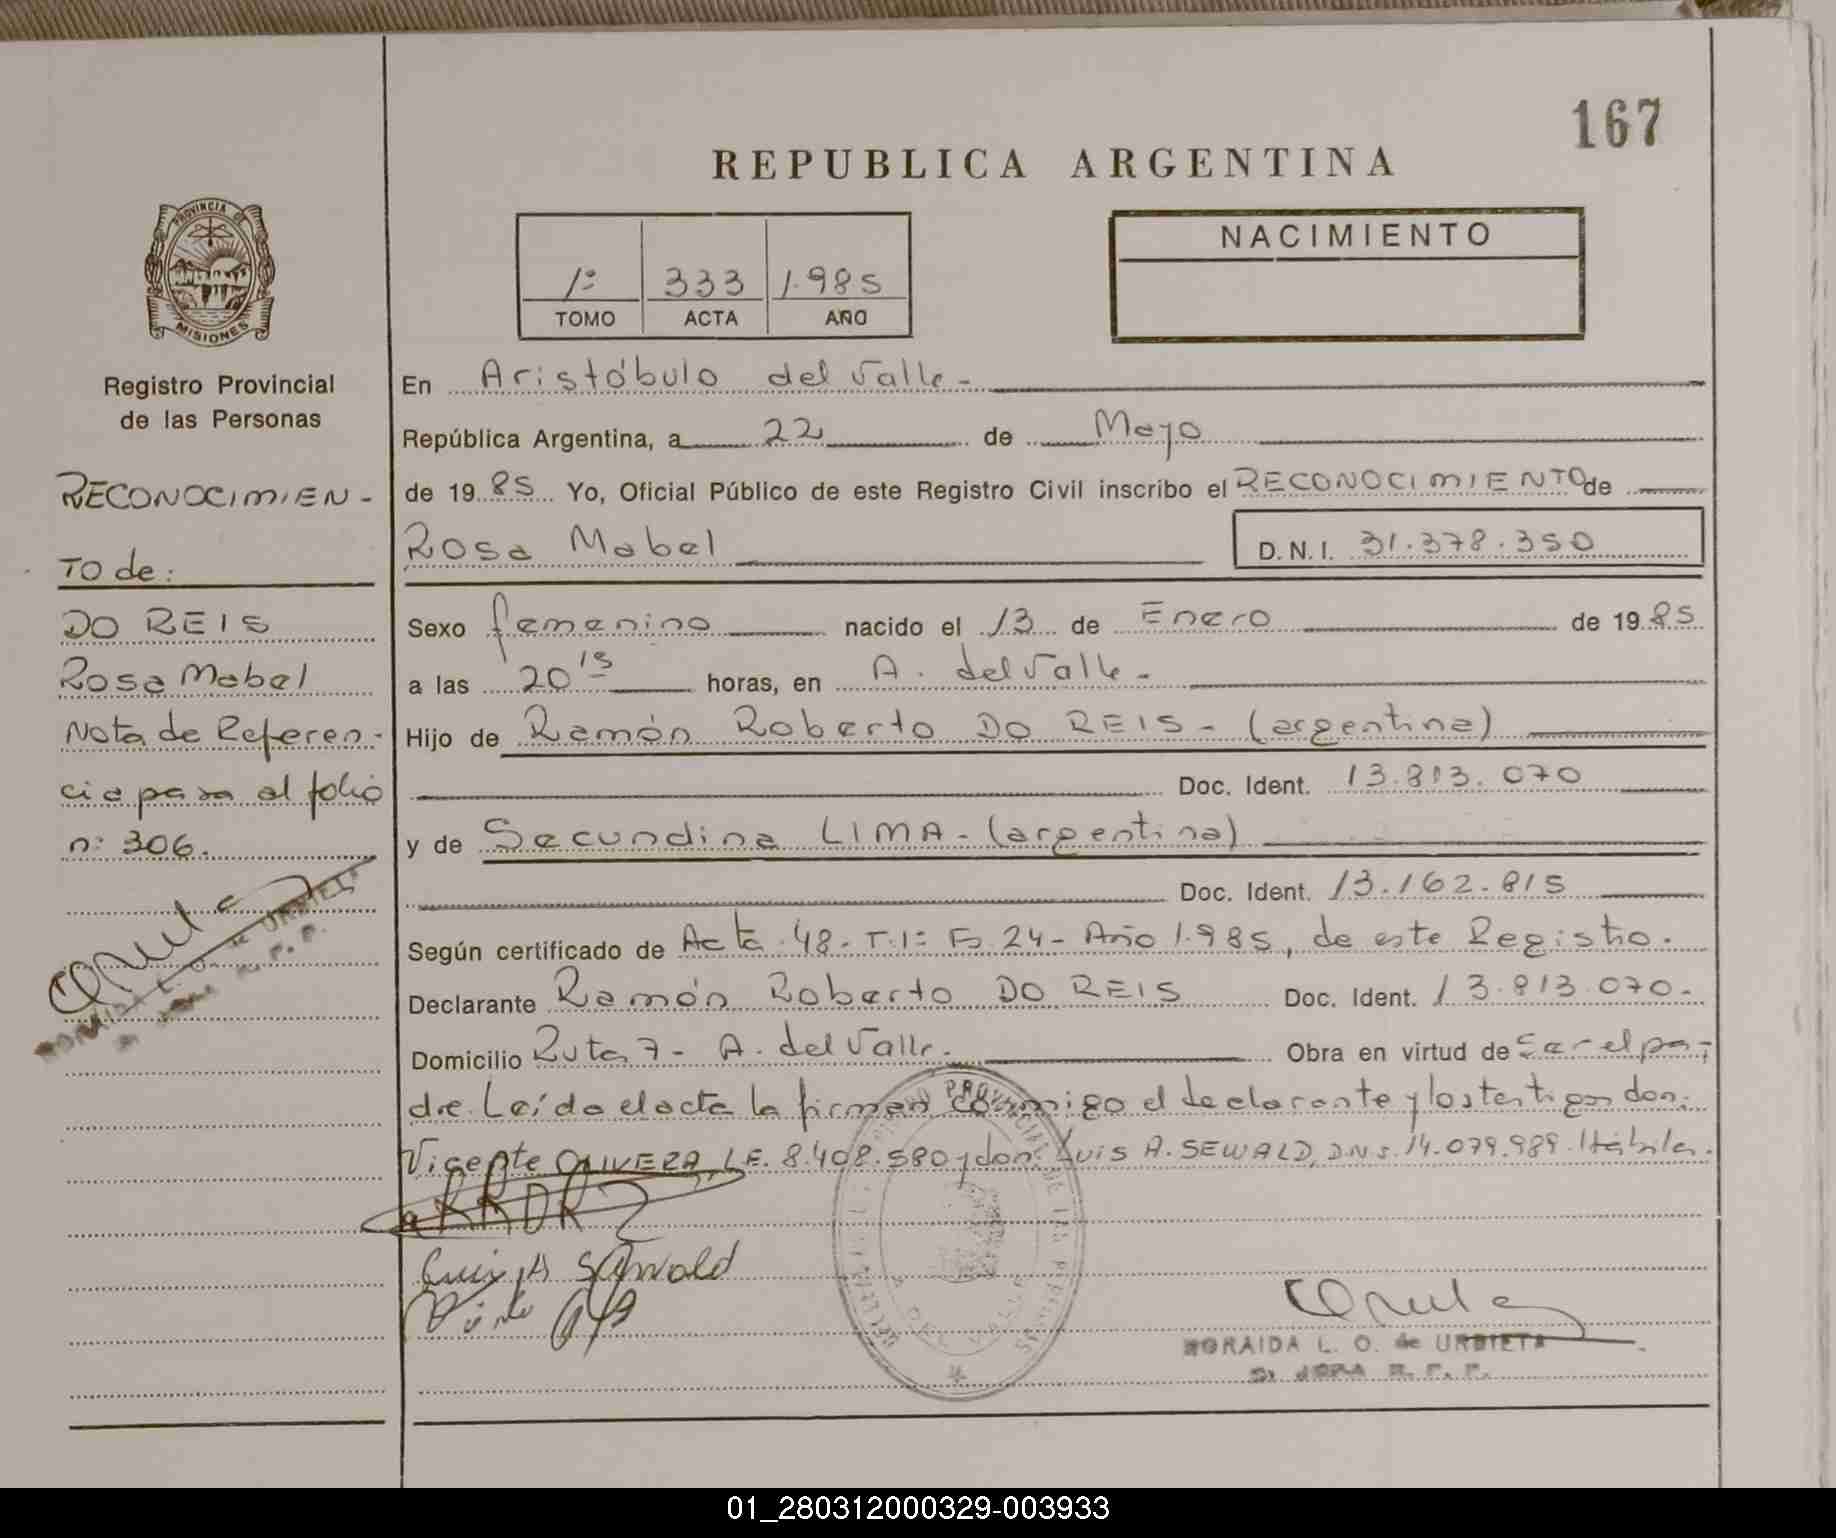 167
REPUBLICA ARGENTINA
PROVINCIA DE
MISIONES
Registro Provincial
de las Personas
1º 333 1.985
TOMO ACTA AÑO
NACIMIENTO
RECONOCIMIEN-
TO de:
DO REIS
Rosa Mabel
Nota de Referen-
cia pasa al folio
nº 306.
En Aristóbulo del Valle-
República Argentina, a 22 de Mayo
de 19 85 Yo, Oficial Público de este Registro Civil inscribo el RECONOCIMIENTO de
Rosa Mabel D.N.I. 31.378.350
Sexo femenino nacido el 13 de Enero de 19 85
a las 20 15 horas, en A. del Valle-
Hijo de Ramón Roberto DO REIS- (argentina)
Doc. Ident. 13.813.070
y de Secundina LIMA- (argentina)
Doc. Ident. 13.162.815
Según certificado de Acta 48- T.1º Fº 24- Año 1.985, de este Registro.
Declarante Ramón Roberto DO REIS Doc. Ident. 13.813.070-
Domicilio Ruta 7- A. del Valle. Obra en virtud de Ser el pa-
dre. Leída el acta la firman conmigo el declarante y los testigos don:
Vicente OLIVERA, L.E. 8.408.580 y don: Luis A. SEWALD, D.N.I. 14.079.989. Hábiles.
Luis A Sewald
NORAIDA L. O. de URBIETA
R. P. P.
01_280312000329-003933